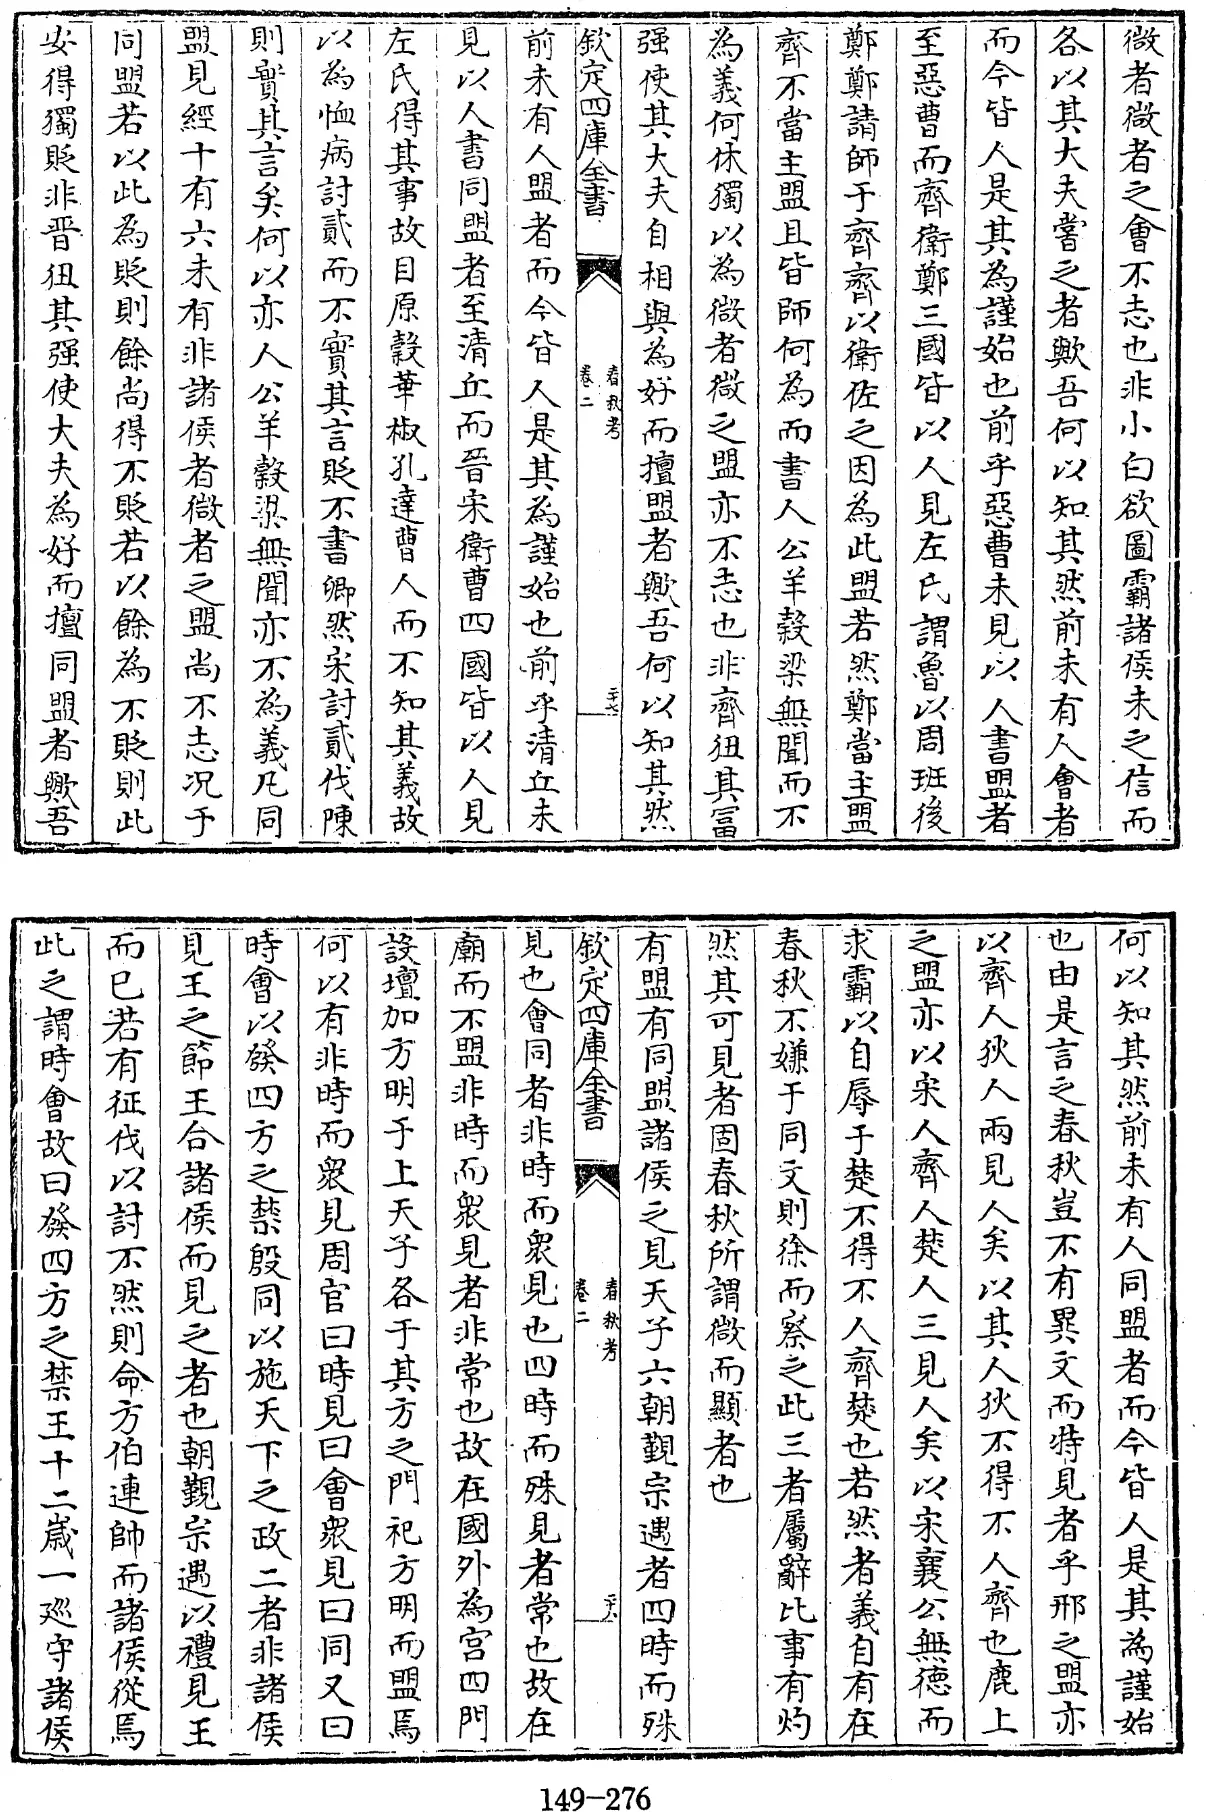 微者微者之會不志也非小白欲圖霸諸侯未之信而
各以其大夫嘗之者歟吾何以知其然前未有人會者
而今皆人是其為謹始也前乎惡曹未見以人書盟者
至惡曹而齊衛鄭三國皆以人見左氏謂魯以周班後
鄭鄭請師于齊齊以衛佐之因為此盟若然鄭當主盟
齊不當主盟且皆師何為而書人公羊穀梁無聞而不
為義何休獨以為微者微之盟亦不志也非齊狃其冨
强使其大夫自相與為好而擅盟者歟吾何以知其然
欽定四庫全書
春秋考
卷二
二十七
前未有人盟者而今皆人是其為謹始也前乎清丘未
見以人書同盟者至清丘而晉宋衛曹四國皆以人見
左氏得其事故目原縠華椒孔達曹人而不知其義故
以為恤病討貳而不實其言貶不書卿然宋討貳伐陳
則實其言矣何以亦人公羊榖梁無聞亦不為義凡同
盟見經十有六未有非諸侯者微者之盟尚不志况于
同盟若以此為貶則餘尚得不貶若以餘為不貶則此
安得獨貶非晉狃其强使大夫為好而擅同盟者歟吾
何以知其然前未有人同盟者而今皆人是其為謹始
也由是言之春秋豈不有異文而特見者乎邢之盟亦
以齊人狄人兩見人矣以其人狄不得不人齊也鹿上
之盟亦以宋人齊人楚人三見人矣以宋襄公無德而
求霸以自辱于楚不得不人齊楚也若然者義自有在
春秋不嫌于同文則徐而察之此三者屬辭比事有灼
然其可見者固春秋所謂微而顯者也
有盟有同盟諸侯之見天子六朝覲宗遇者四時而殊
欽定四庫全書
春秋考
卷二
二十八
見也會同者非時而衆見也四時而殊見者常也故在
廟而不盟非時而衆見者非常也故在國外為宫四門
設壇加方明于上天子各于其方之門祀方明而盟焉
何以有非時而衆見周官曰時見曰會衆見曰同又曰
時會以發四方之禁殷同以施天下之政二者非諸侯
見王之節王合諸侯而見之者也朝覲宗遇以禮見王
而已若有征伐以討不然則命方伯連帥而諸侯從焉
此之謂時會故曰發四方之禁王十二歲一廵守諸侯
149-276